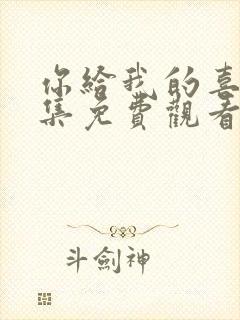 你給我的喜
集免費觀看
斗劍神